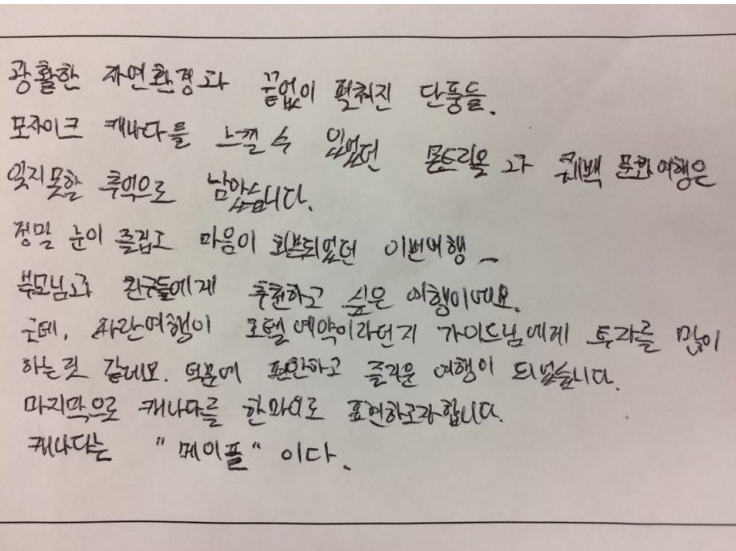 광활한 자연환경과 끝없이 펼춰진 단풍들.
모자이크 캐나다를 느낄 수 있었던 몬트리올과 퀘백 문화여행은
잊지못할 추억으로 남았습니다.
정말 눈이 즐겁고 마음이 회복되었던 이번여행 ~
부모님과 친구들에게 추천하고 싶은 여행이네요.
근데, 파란여행이 호텔예약이라던지 가이드님에게 투자를 많이
하는것 같네요. 덕분에 편안하고 즐거운 여행이 되었습니다.
마지막으로 캐나다를 표현하고자합니다.
캐나다는 "메이플" 이다.